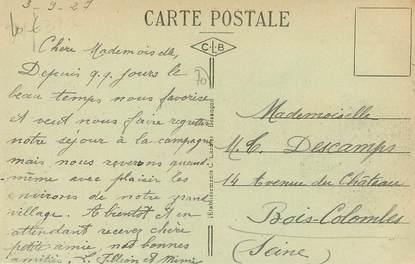 3-9-27
CARTE POSTALE
C-L-B
Chère Mademoiselle,
Depuis q.q. jours le
beau temps nous favorise
et veut nous faire regretter
notre séjour à la campagne
mais nous reverons quand-
même avec plaisir les
environs de notre grand
village. A bientôt et en
attendant recevez chère
petite amie, nos bonnes
amitiés. et Mimi
70
Etablissements C. Lardier, Besançon
Mademoiselle
M. C. Descamps
14 Avenue du Château
Bois-Colombes
(Seine)